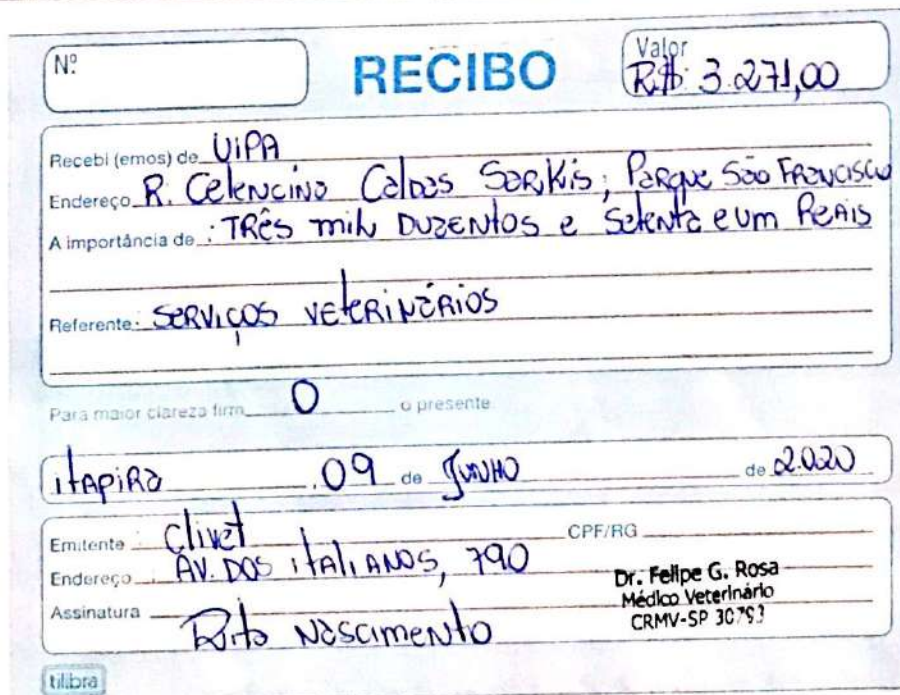 Nº
RECIBO
Valor
R$: 3.271,00
Recebi (emos) de UIPA
Endereço R. Celencino Caldas Sarkis; Parque São Francisco
A importância de : Três mil Duzentos e Setenta e um Reais
Referente: Serviços veterinários
Para maior clareza firm O o presente
itapira 09 de Junho de 2.020
Emitente Clivet CPF/RG
Endereço : AV. DOS iTALiANOS, 790
Dr. Felipe G. Rosa
Médico Veterinário
CRMV-SP 30793
Assinatura Rita Nascimento
tilibra